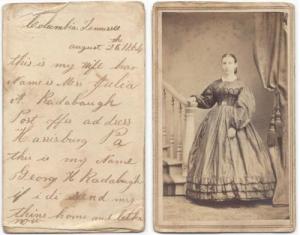 Columbia Tennessee
august 26th 1864
this is my wife her
Name is Mrs Julia
A. Radabaugh
Post offes address
Harrisburg Pa
this is my Name
Georg H Radabaugh
if i di send my
thins home and let hir